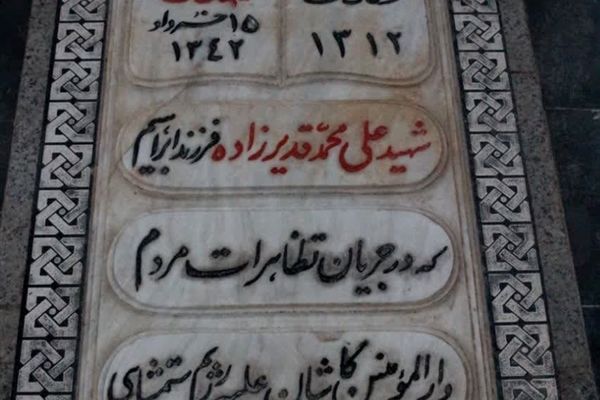 ۱۵ خرداد
۱۳۱۲ ۱۳۴۲
شهید علی محمد قدیرزاده فرزند ابراهیم
که در جریان تظاهرات مردم
دارالمؤمنین کاشان علیه رژیم ستمشاهی